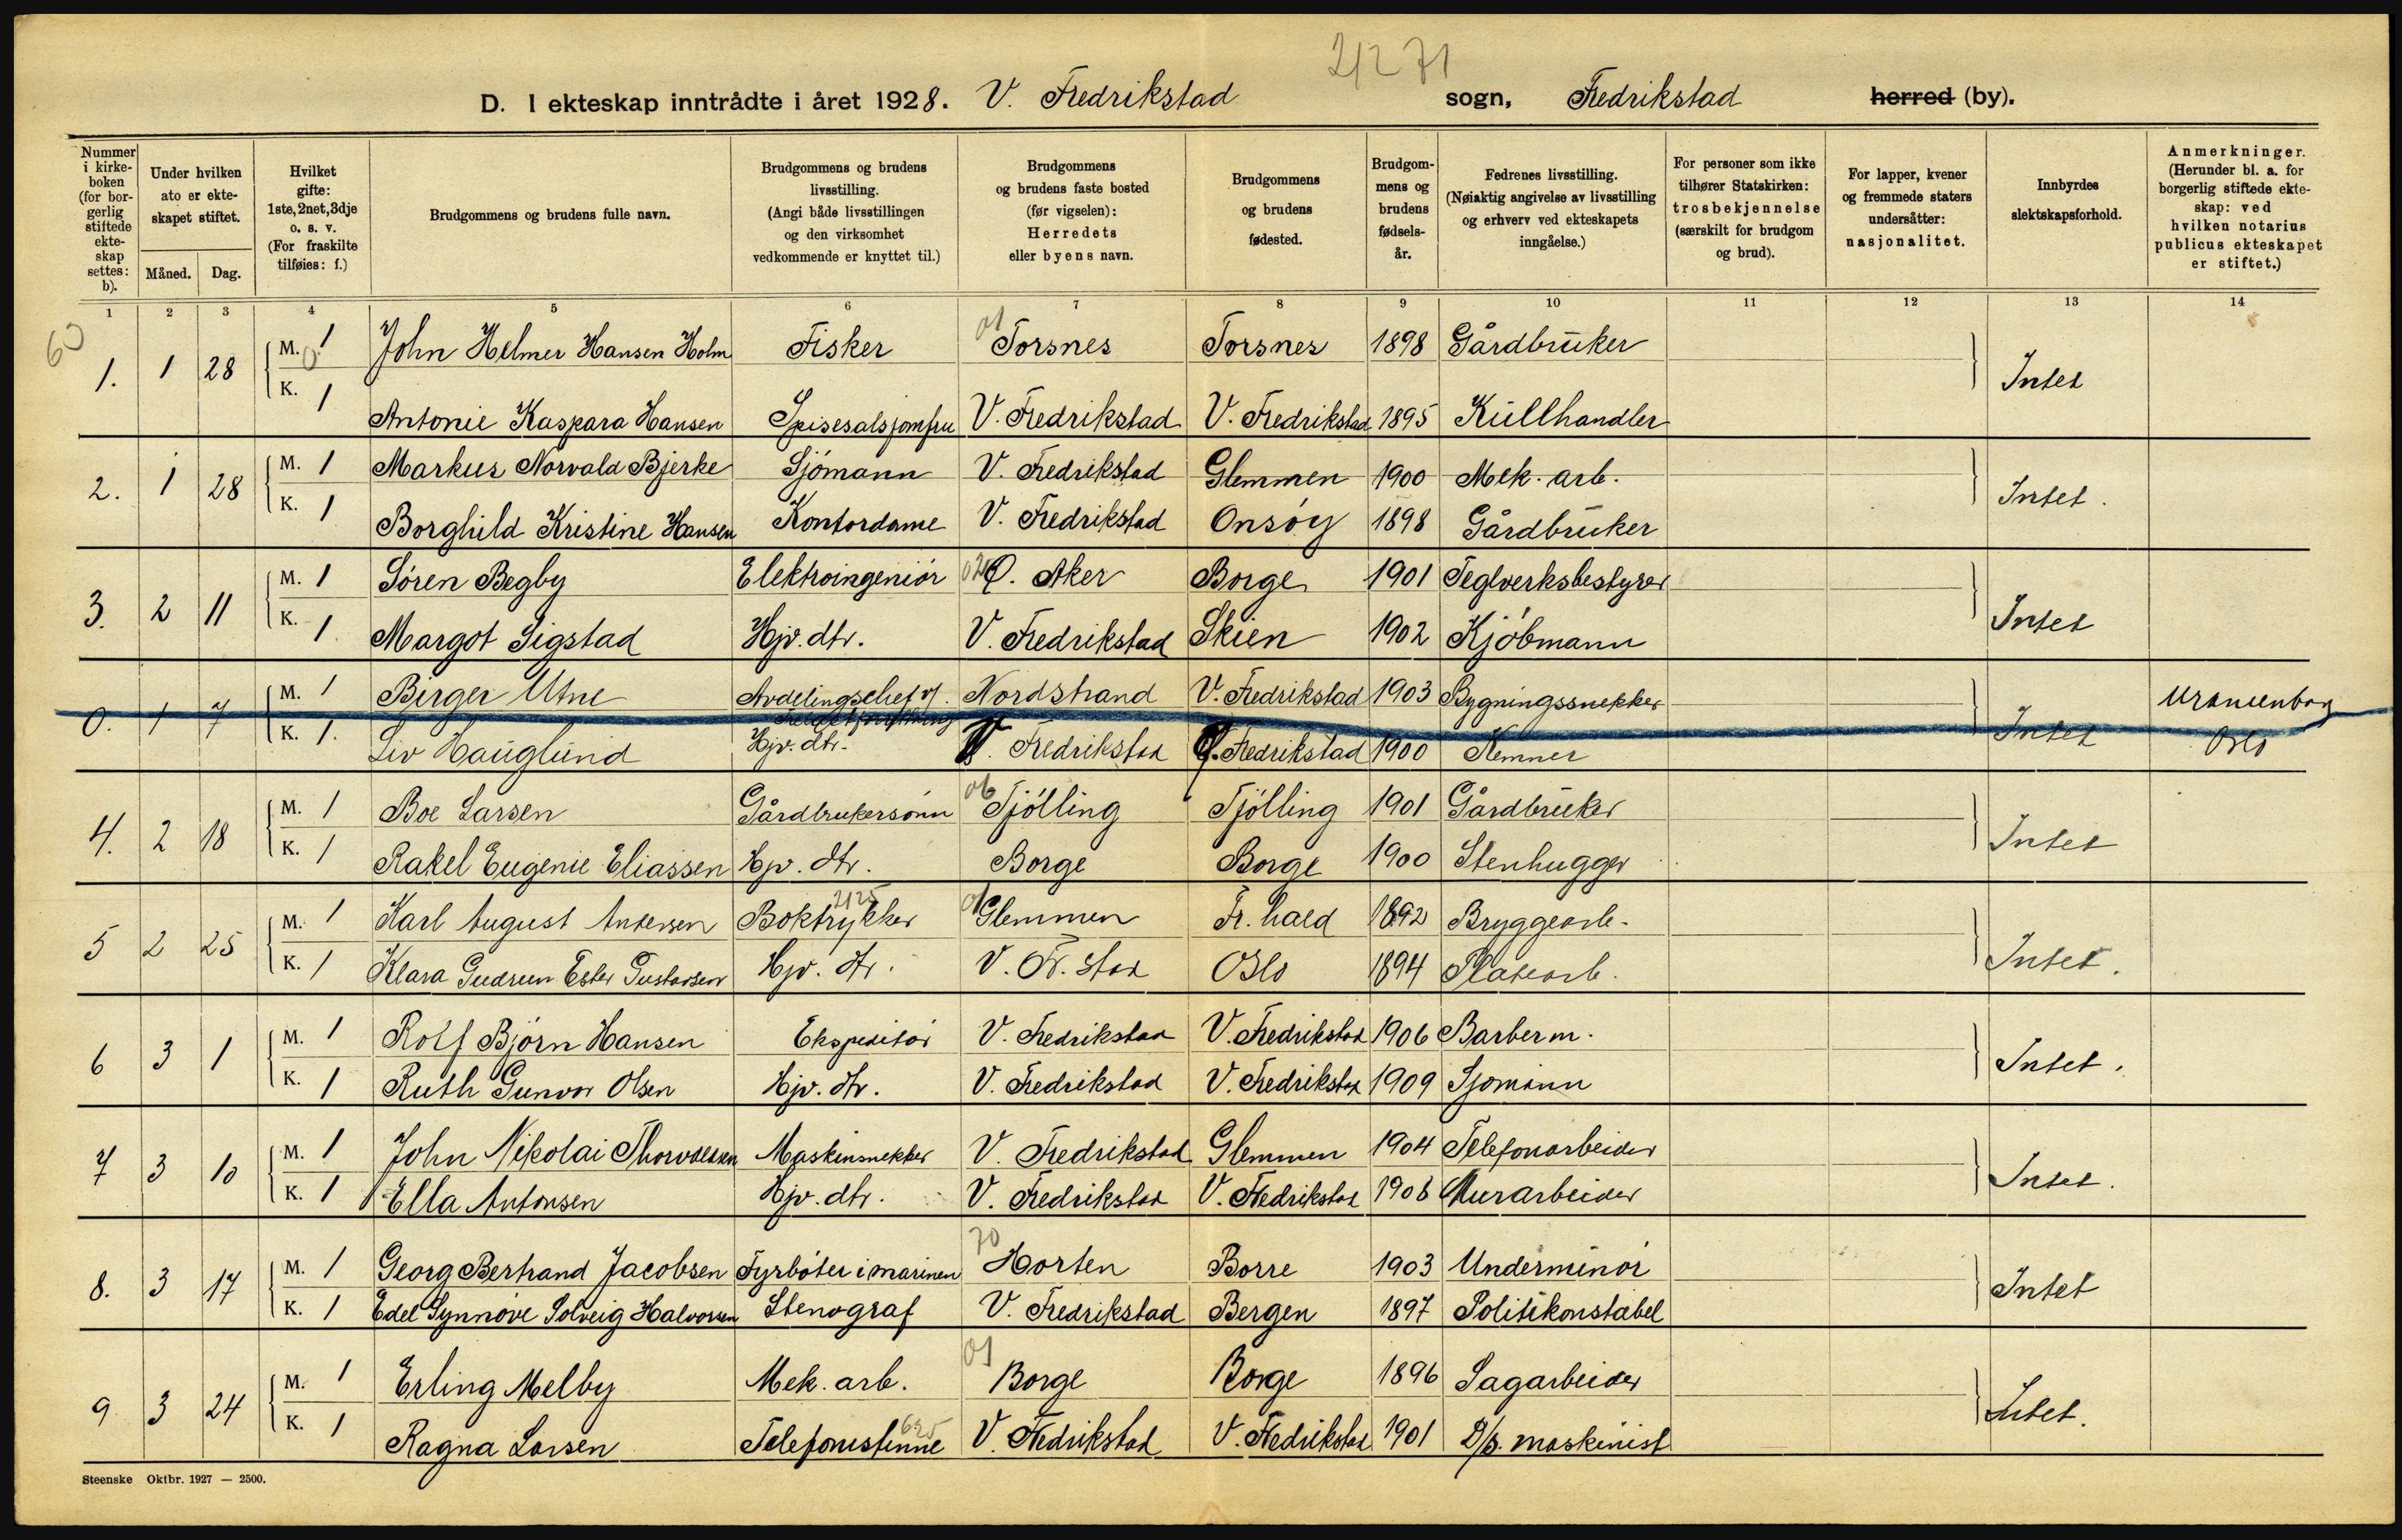 21271
D. I ekteskap inntrådte i året 1928. V. Fredrikstad sogn, Fredrikstad herred (by).
Nummer i kirke-boken (for bor-gerlig stiftede ekte-skap settes: b).
Under hvilken dato er ekte-skapet stiftet.
Måned. Dag.
Hvilket gifte: 1ste, 2net, 3dje o. s. v. (For fraskilte tilføies: f.)
Brudgommens og brudens fulle navn.
Brudgommens og brudens livsstilling. (Angi både livsstillingen og den virksomhet vedkommende er knyttet til.)
Brudgommens og brudens faste bosted (før vigselen): Herredets eller byens navn.
Brudgommens og brudens fødested.
Brudgom-mens og brudens fødsels-år.
Fedrenes livsstilling. (Nøiaktig angivelse av livsstilling og erhverv ved ekteskapets inngåelse.)
For personer som ikke tilhører Statskirken: trosbekjennelse (særskilt for brudgom og brud).
For lapper, kvener og fremmede staters undersåtter: nasjonalitet.
Innbyrdes slektskapsforhold.
Anmerkninger. (Herunder bl. a. for borgerlig stiftede ekte-skap: ved hvilken notarius publicus ekteskapet er stiftet.)
1 2 3 4 5 6 7 8 9 10 11 12 13 14
60
1. 1 28 M. 1 John Helmer Hansen Holm Fisker 01 Torsnes Torsnes 1898 Gårdbruker Intet
K. 1 Antonie Kaspara Hansen Spisesalsjomfru V. Fredrikstad V. Fredrikstad 1895 Kullhandler
2. 1 28 M. 1 Markus Norvald Bjerke Sjömann V. Fredrikstad Glemmen 1900 Mek. arb. Intet.
K. 1 Borghild Kristine Hansen Kontordame V. Fredrikstad Onsöy 1898 Gårdbruker
3. 2 11 M. 1 Sören Begby Elektroingeniör 02 Ø. Aker Borge 1901 Teglverksbestyrer Intet
K. 1 Margot Sigstad Hjv. dtr. V. Fredrikstad Skien 1902 Kjöbmann
0. 1 7 M. 1 Birger Utne Avdelingschef v/ Nordstrand V. Fredrikstad 1903 Bygningssnekker Intet Uranienborg
K. 1. Liv Hauglund Hjv. dtr. V. Fredrikstad Fredrikstad 1900 Kemner Oslo
4. 2 18 M. 1 Boe Larsen Gårdbrukersönn 06 Tjölling Tjölling 1901 Gårdbruker Intet
K. 1 Rakel Eugenie Eliassen Hjv. dtr. Borge Borge 1900 Stenhugger
5 2 25 M. 1 Karl August Andersen Boktrykker 2125 01 Glemmen Fr. hald 1892 Bryggearb. Intet.
K. 1 Klara Gudrun Ester Gustavsen Hjv. dtr. V. Fr. stad Oslo 1894 Platearb.
6 3 1 M. 1 Rolf Björn Hansen Ekspeditör V. Fredrikstad V. Fredrikstad 1906 Barberm. Intet.
K. 1 Ruth Gunvor Olsen Hjv. dtr. V. Fredrikstad V. Fredrikstad 1909 Sjömann
7 3 10 M. 1 John Nikolai Thorvaldsen Maskinsnekker V. Fredrikstad Glemmen 1904 Telefonarbeider Intet.
K. 1 Ella Antonsen Hjv. dtr. V. Fredrikstad V. Fredrikstad 1906 Murarbeider
8. 3 17 M. 1 Georg Bertrand Jacobsen Fyrböter i marinen 70 Horten Borre 1903 Underminör Intet
K. 1 Edel Synnöve Solveig Halvorsen Stenograf V. Fredrikstad Bergen 1897 Politikonstabel
9. 3 24 M. 1 Erling Melby Mek. arb. 01 Borge Borge 1896 Sagarbeider Intet.
K. 1 Ragna Larsen Telefonistinne V. Fredrikstad V. Fredrikstad 1901 D/s. maskinist
Steenske Oktbr. 1927 — 2500.